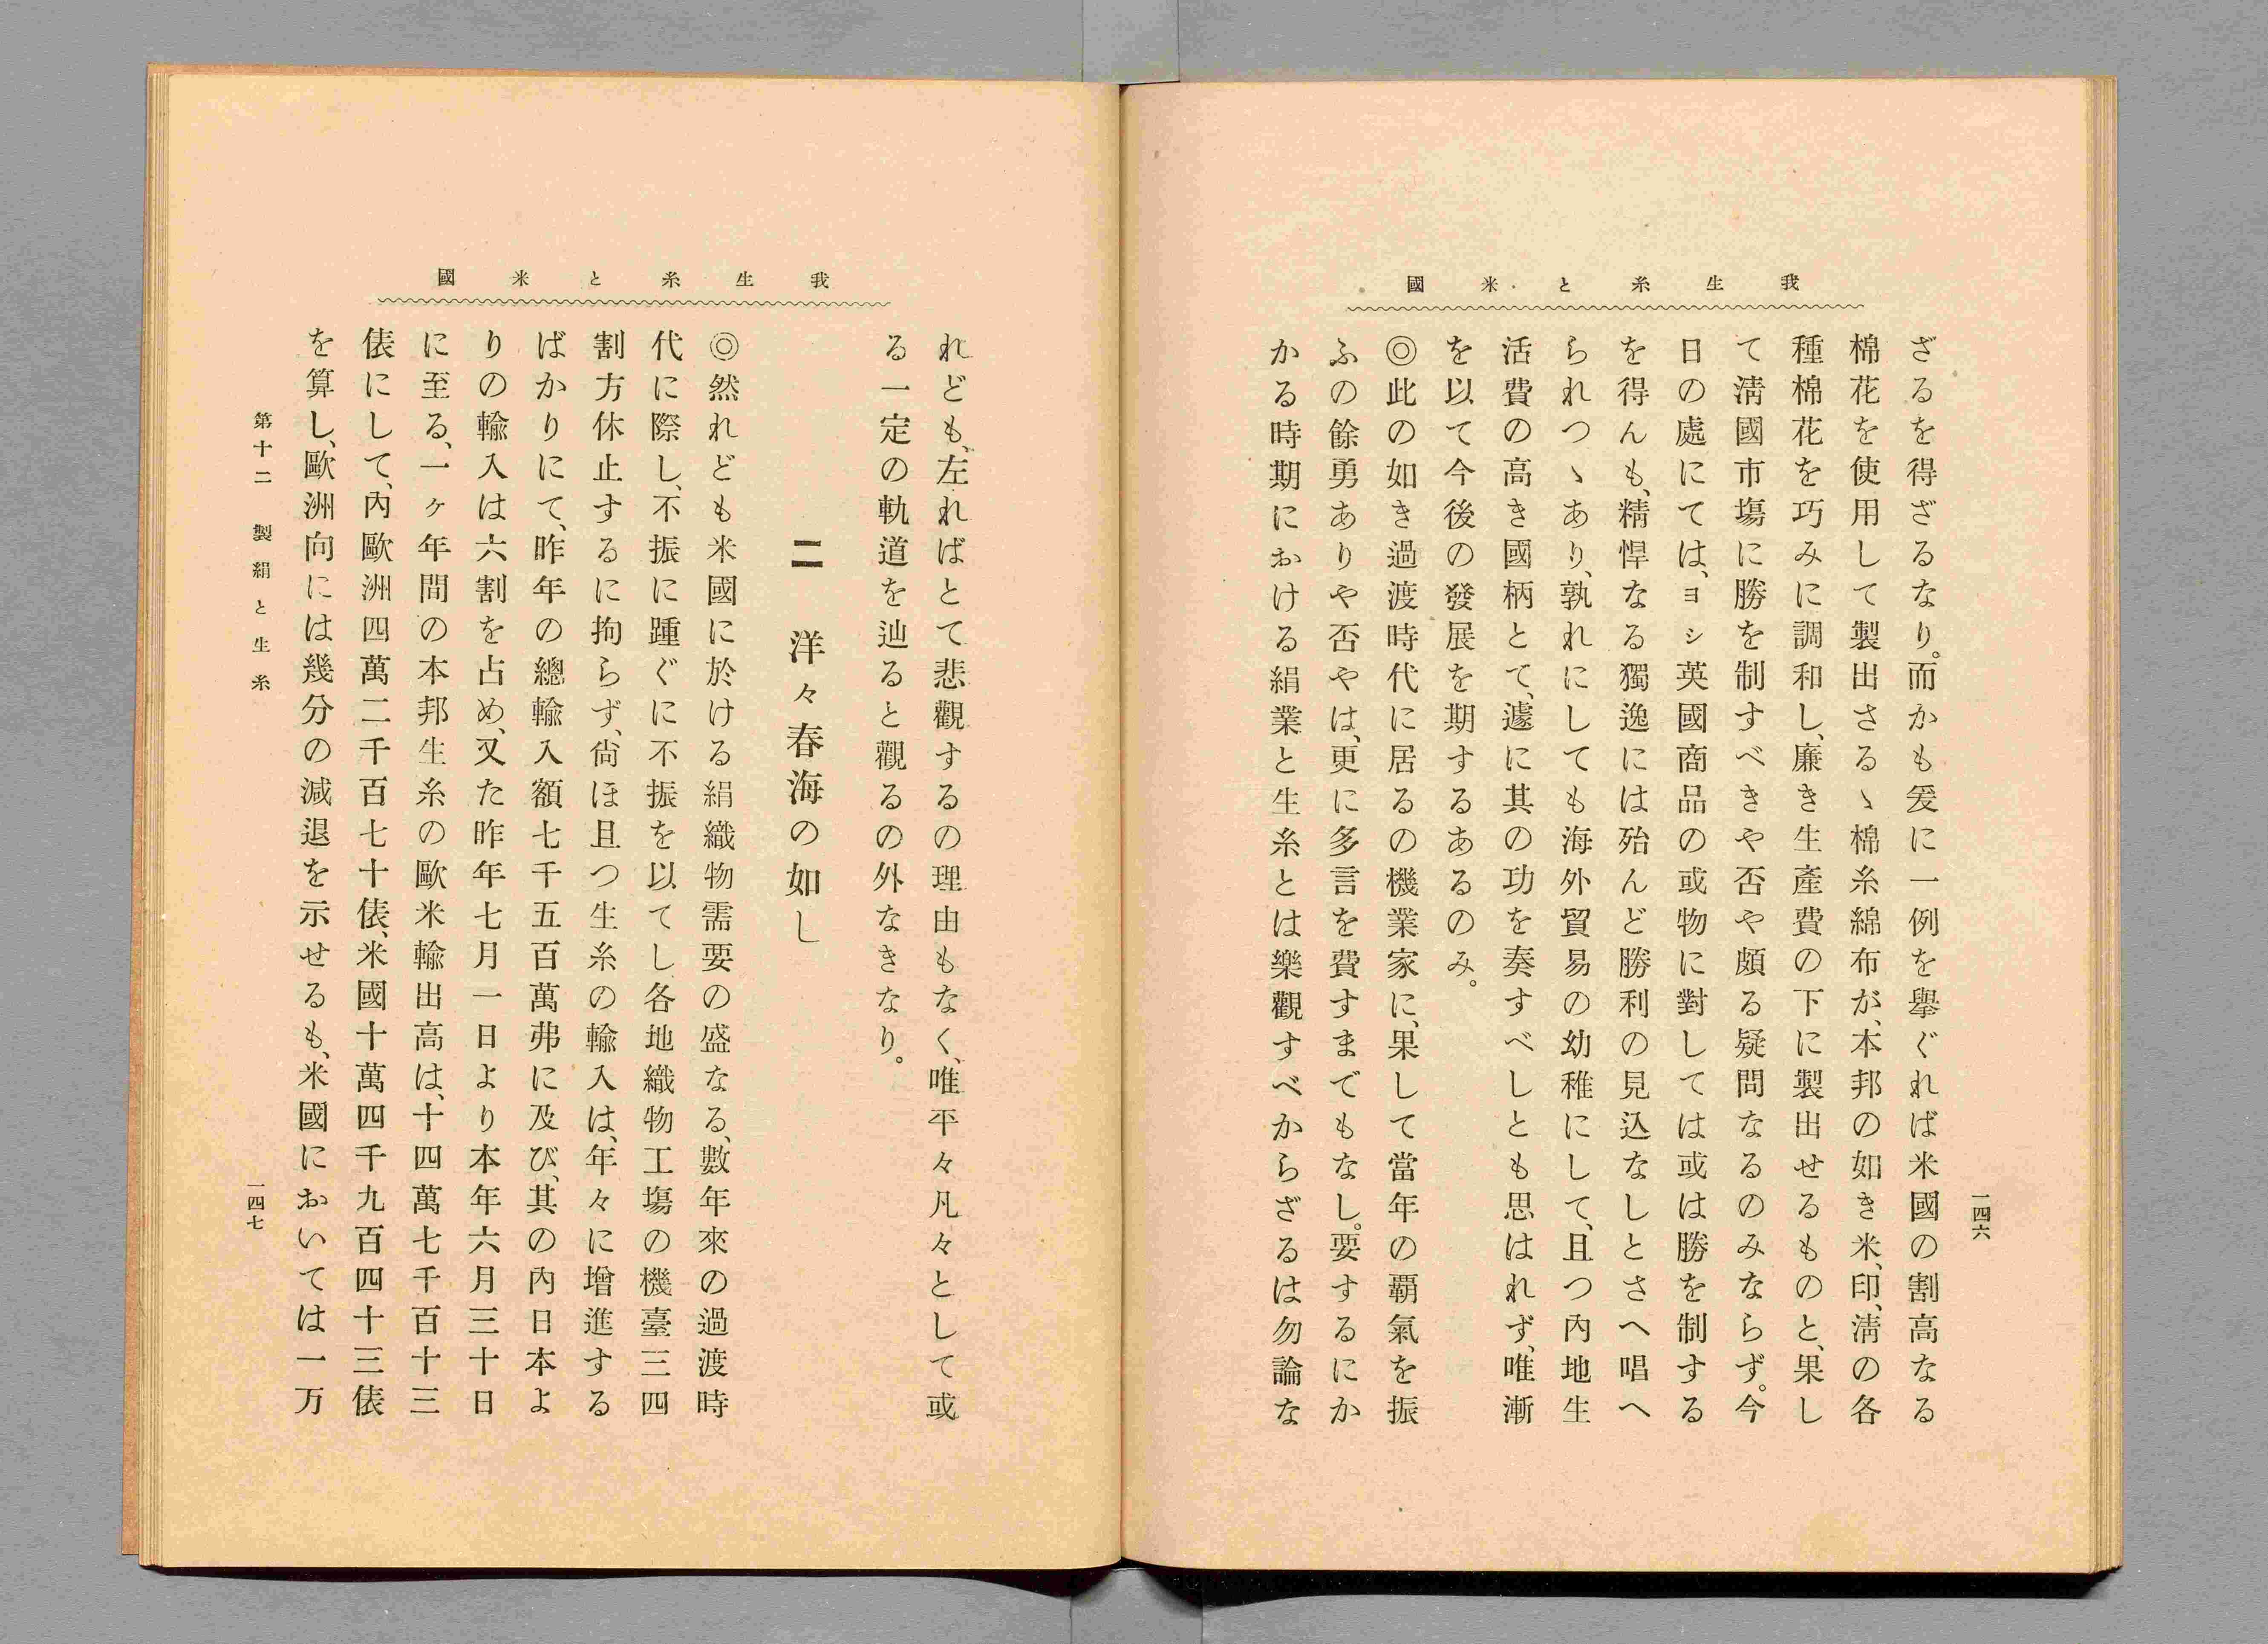 我生糸と米國
一四六
ざるを得ざるなり。而かも爰に一例を擧ぐれば米國の割高なる
棉花を使用して製出さるゝ棉糸綿布が、本邦の如き米、印、淸の各
種棉花を巧みに調和し、廉き生產費の下に製出せるものと、果し
て淸國市塲に勝を制すべきや否や頗る疑問なるのみならず。今
日の處にては、ヨシ英國商品の或物に對しては或は勝を制する
を得んも、精悍なる獨逸には殆んど勝利の見込なしとさへ唱へ
られつゝあり、孰れにしても海外貿易の幼稚にして、且つ內地生
活費の高き國柄とて、遽に其の功を奏すべしとも思はれず、唯漸
を以て今後の發展を期するあるのみ。
◎此の如き過渡時代に居るの機業家に、果して當年の覇氣を振
ふの餘勇ありや否やは、更に多言を費すまでもなし。要するにか
かる時期における絹業と生糸とは樂觀すべからざるは勿論な
我生糸と米國
れども、左ればとて悲觀するの理由もなく、唯平々凡々として或
る一定の軌道を辿ると觀るの外なきなり。
二 洋々春海の如し
◎然れども米國に於ける絹織物需要の盛なる、數年來の過渡時
代に際し、不振に踵ぐに不振を以てし各地織物工塲の機臺三四
割方休止するに拘らず、尙ほ且つ生糸の輸入は、年々に增進する
ばかりにて、昨年の總輸入額七千五百萬弗に及び、其の內日本よ
りの輸入は六割を占め、又た昨年七月一日より本年六月三十日
に至る、一ヶ年間の本邦生糸の歐米輸出高は、十四萬七千百十三
俵にして、內歐洲四萬二千百七十俵、米國十萬四千九百四十三俵
を算し、歐洲向には幾分の減退を示せるも、米國においては一万
第十二 製絹と生糸
一四七